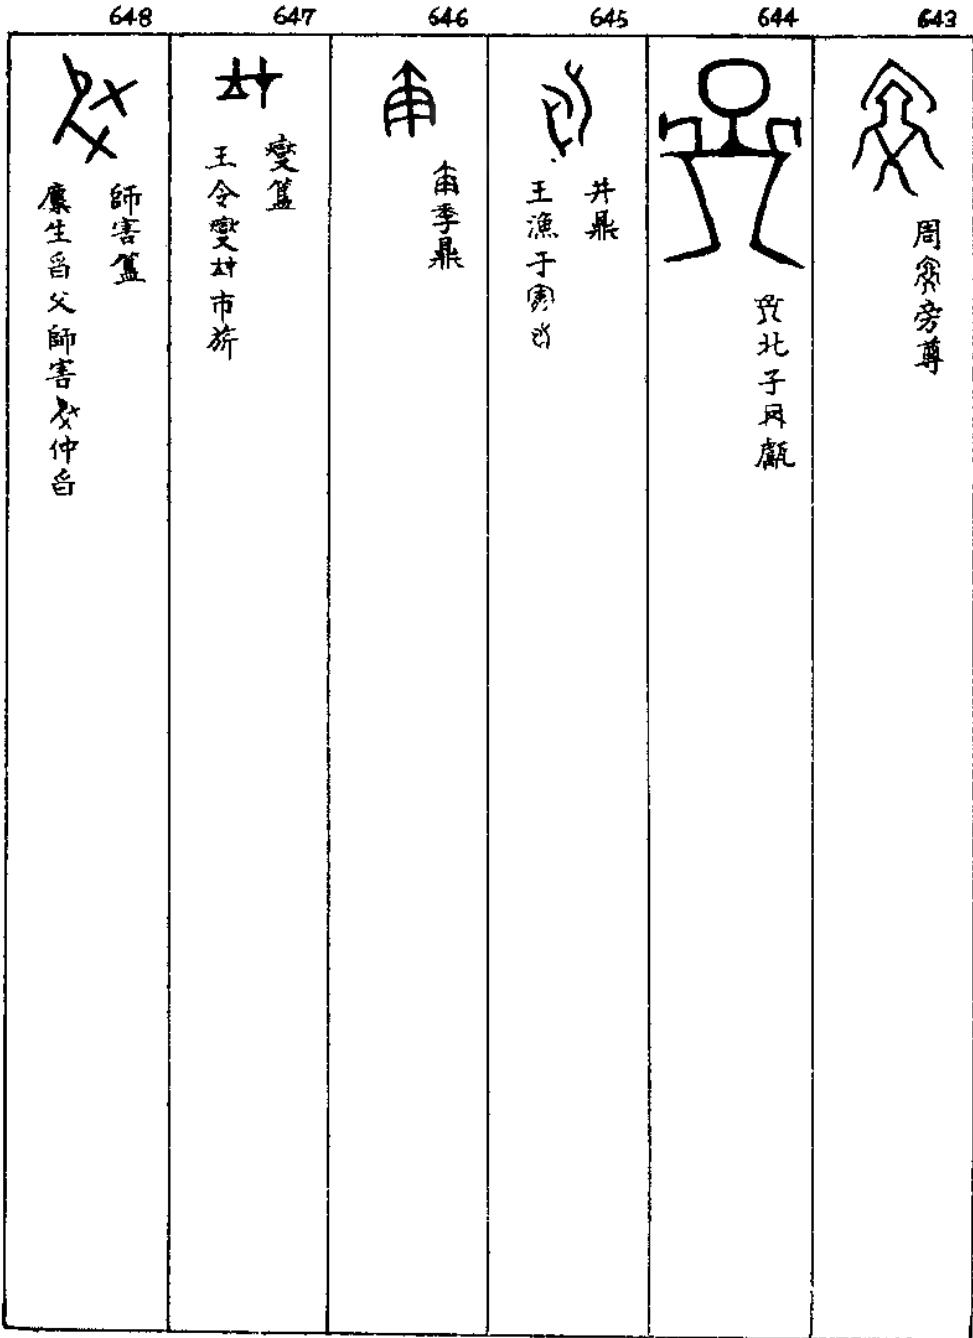 643
周旁尊
644
北子甗
645
井鼎
王漁于
646
季鼎
647
燮簋
王令燮市旂
648
師害簋
麋生𥃝父師害仲𥃝